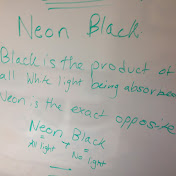 Neon Black
Black is the product of
all white light being absorbed
Neon is the exact opposite
Neon Black
All light → No light